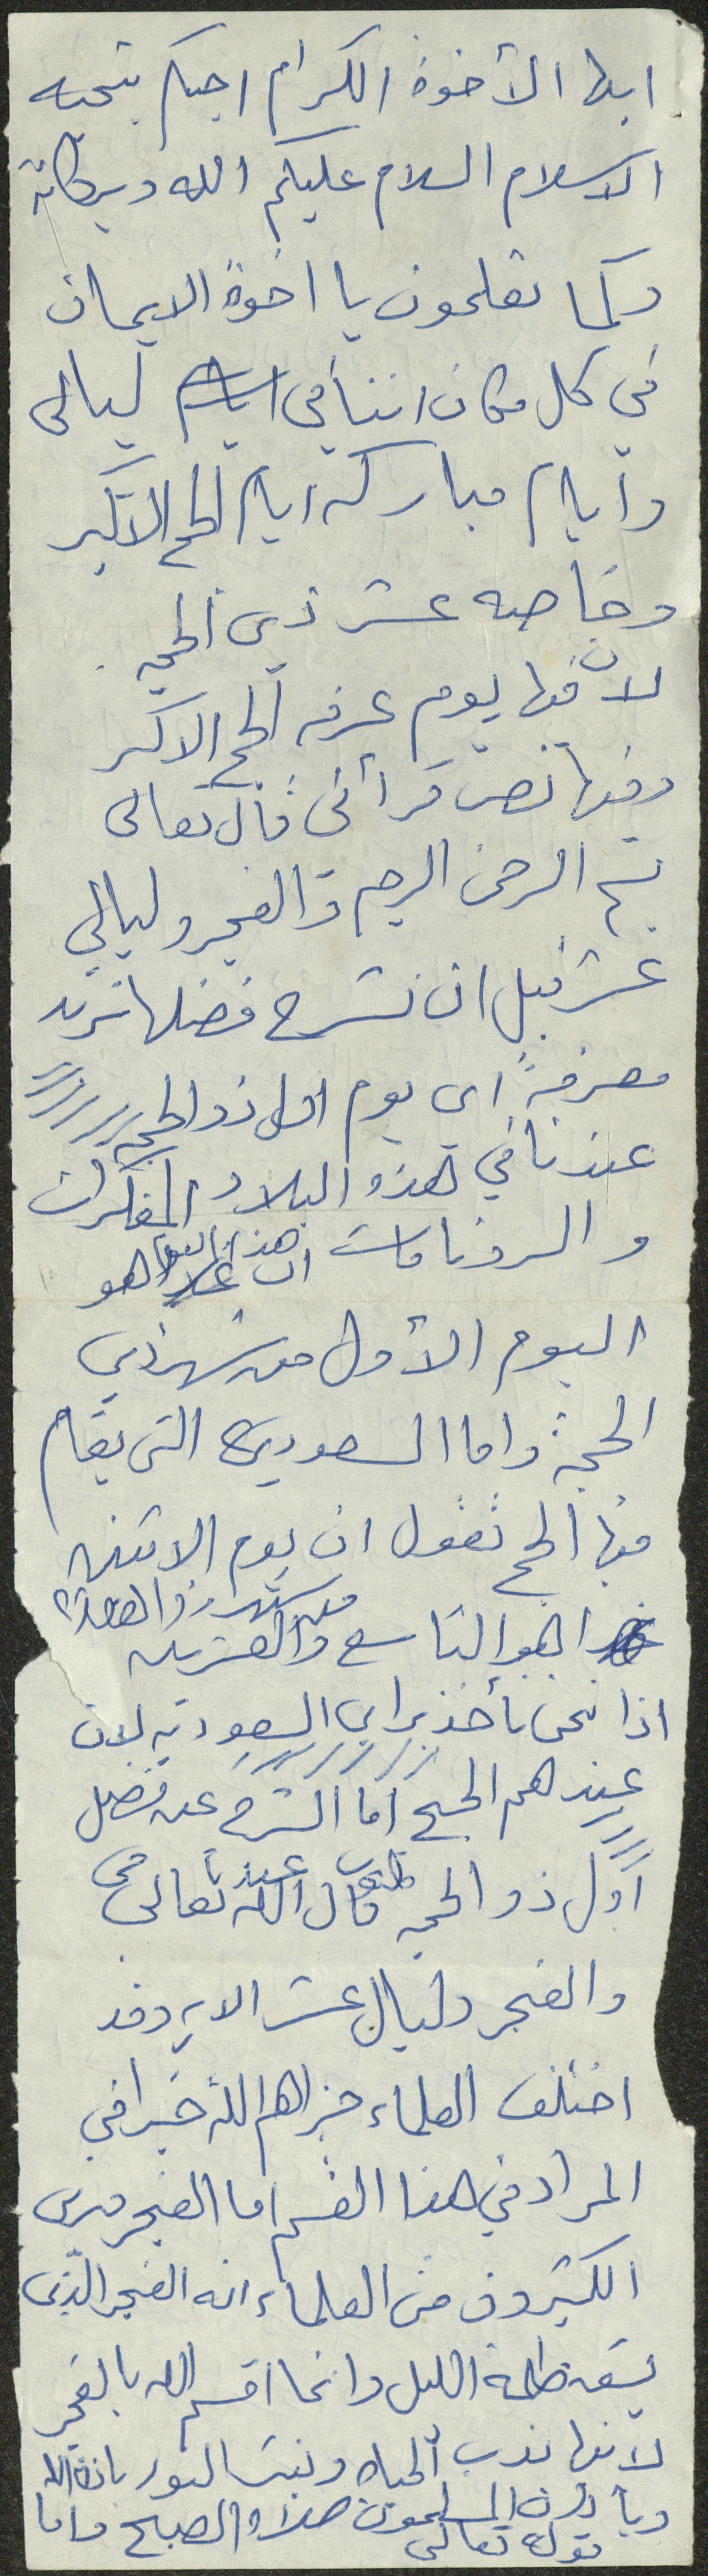 ايها الأخوة الكرام احيكم بتحيه
الاسلام السلام عليكم الله وبركاته
وكما تعلمون يا اخوة الايمان
في كل مكان اننا في ليالى
وأيام مباركه ايام الحج الاكبر
وخاصه عشر ذي الحجه
لأن فيها يوم عرفه الحج الاكبر
وفيها نص قرأنى قال تعالى
بسم الرحمن الرحيم والفجر وليالي
عشر قبل ان نشرح فضلها نريد
معرفة اي يوم اول ذو الحجه
عندنا في هذه البلاد المفكرات
والروزنامات ان هذا اليوم هو
اليوم الأول من شهر ذي
الحجة واما السعوديه التى يقام
فيها الحج تقول ان يوم الاثنين
هو التاسع والعشرين من شهر ذو القعدة
اذا نحن نأخذ براي السعوديه لان
عندهم الحج أما الشرح عن فضل
أول ذو الحجه قال الله تعالى
والفجر وليال عشر الايه وقد
اختلف العلماء جزاهم الله خيرا في
المراد في هذا القسم اما الفجر فيرى
الكثيرون من العلماء انه الفجر الذى
يشق ظلمة الليل وانما اقسم الله بالفجر
لانها تدب الحياه النور باذن الله
المسلمون صلاة الصبح واما
قوله تعالى